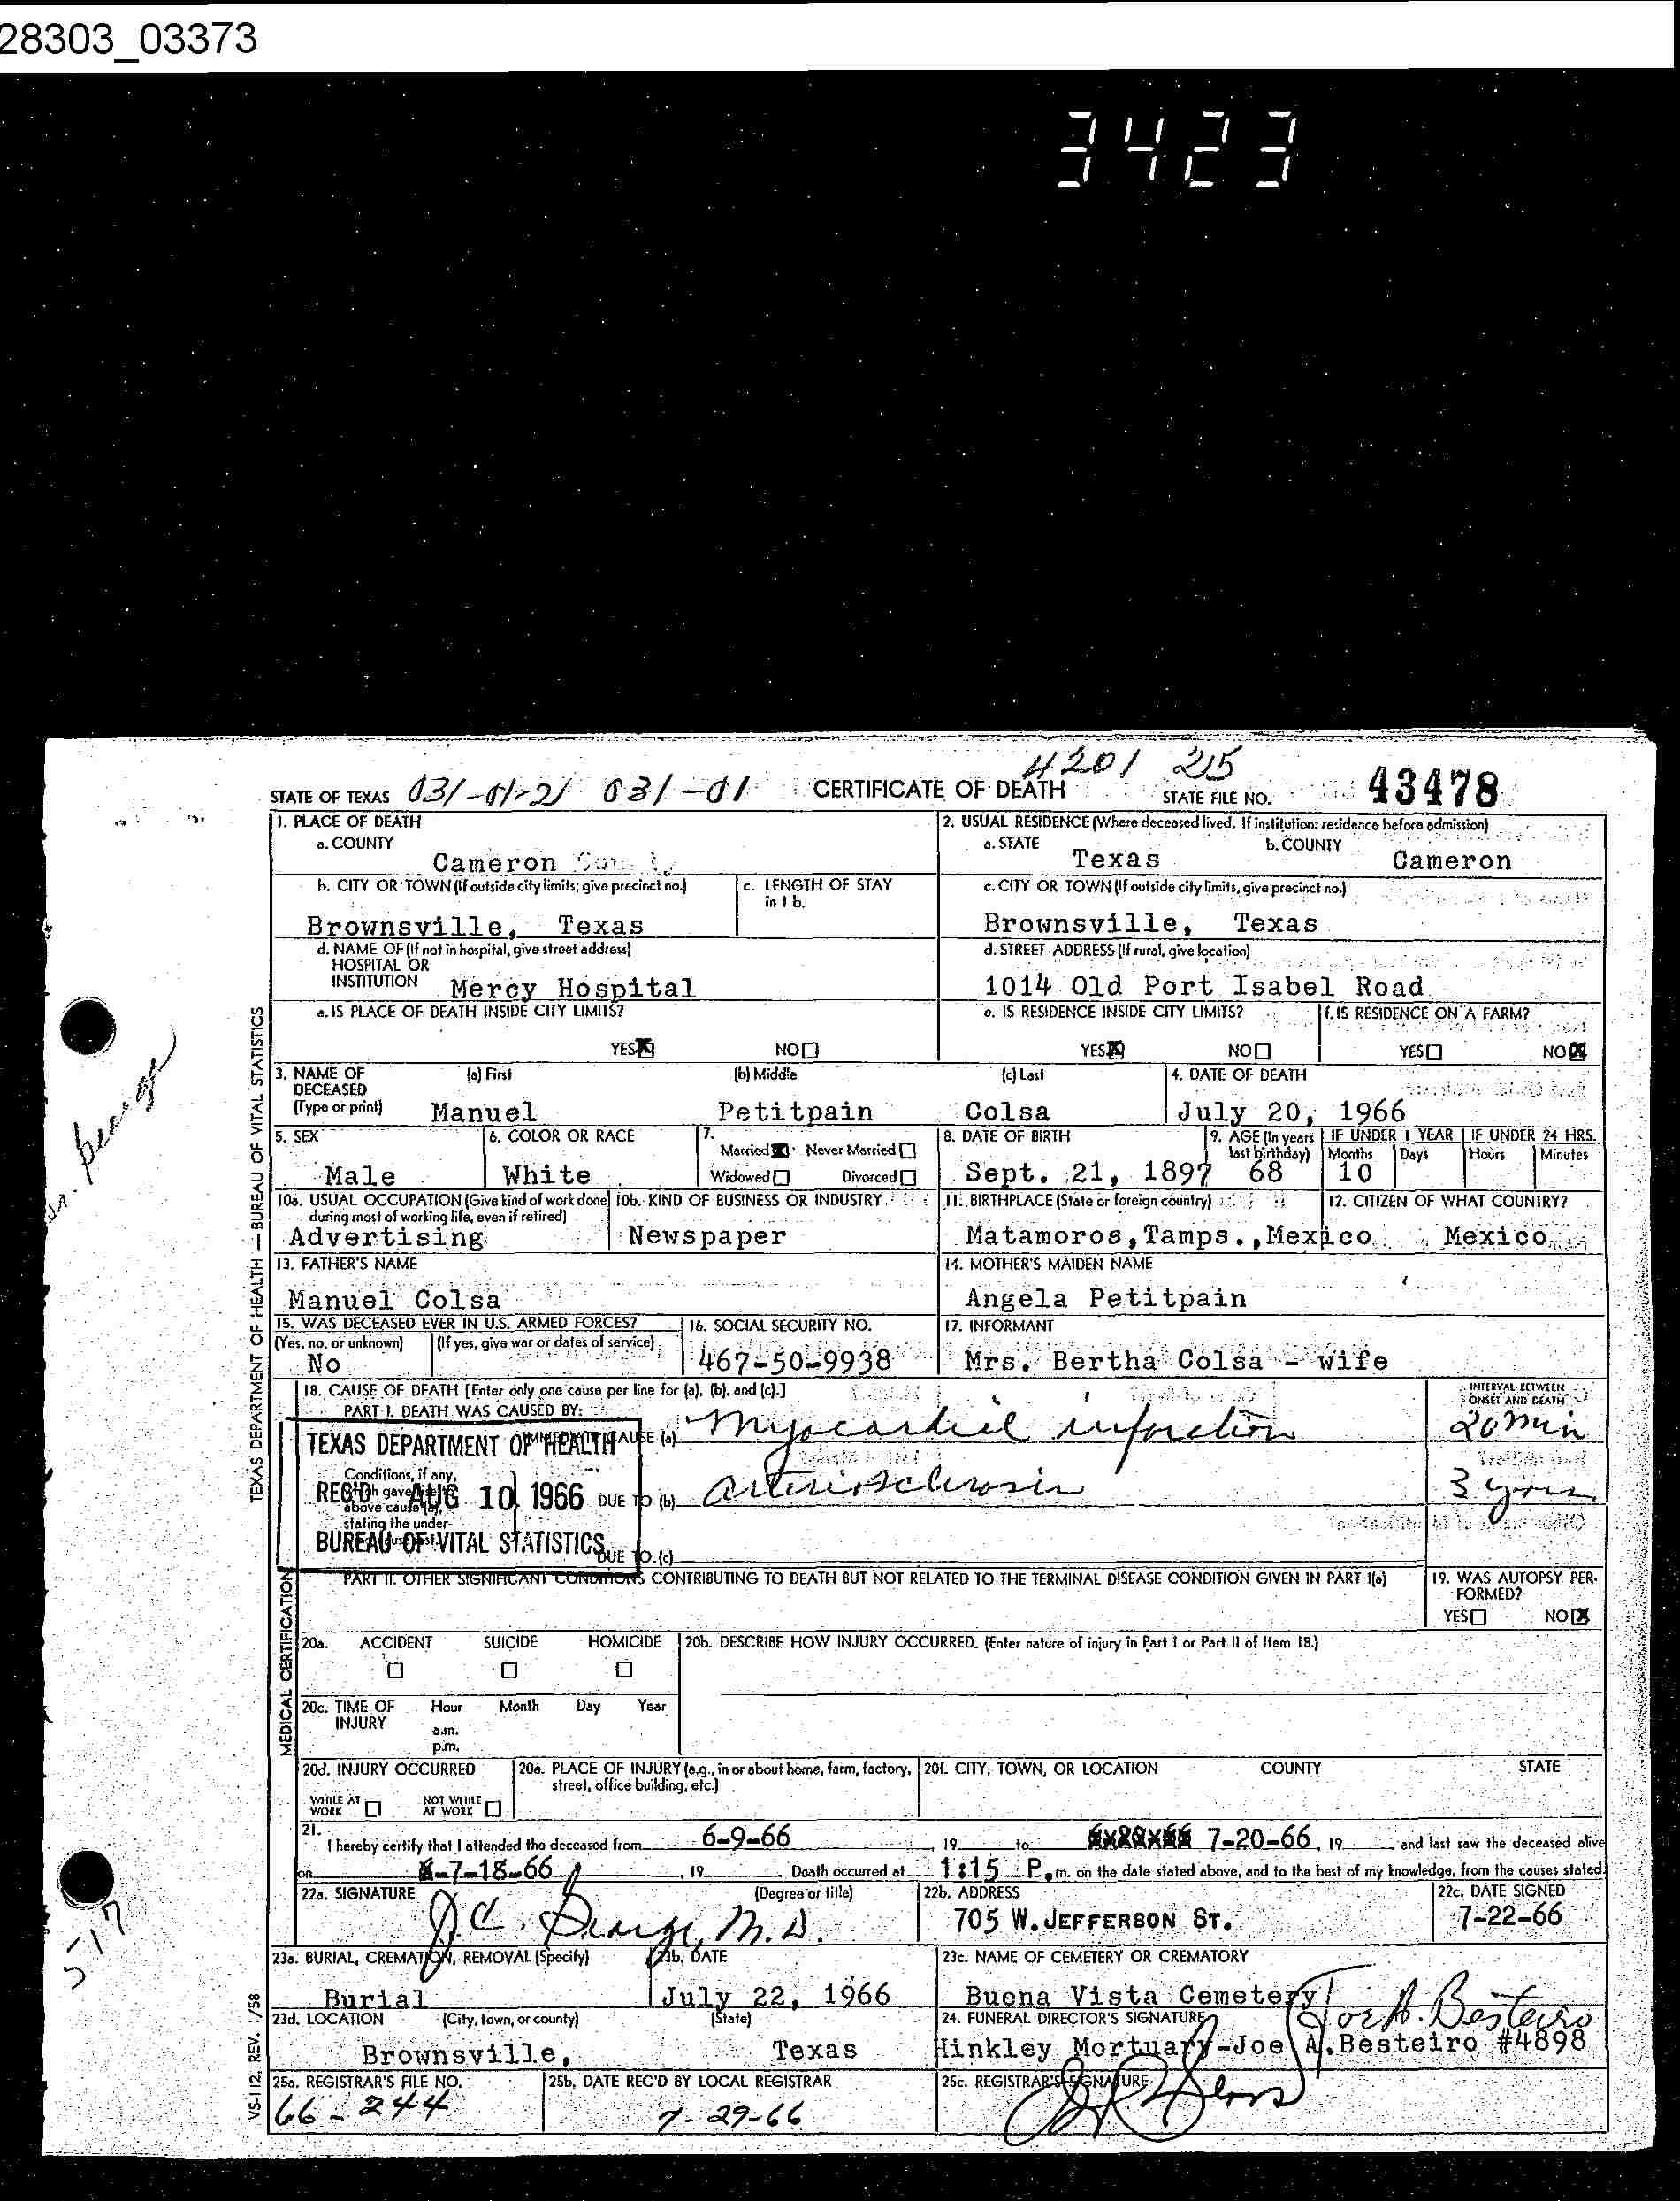 28303_03373
3423
4201 215
STATE OF TEXAS 031-01-21 031-01 CERTIFICATE OF DEATH STATE FILE NO. 43478
1. PLACE OF DEATH
a. COUNTY
Cameron
2. USUAL RESIDENCE (Where deceased lived. If institution: residence before admission)
a. STATE Texas b. COUNTY Cameron
b. CITY OR TOWN (If outside city limits, give precinct no.)
Brownsville, Texas
c. LENGTH OF STAY in 1 b.
c. CITY OR TOWN (If outside city limits, give precinct no.)
Brownsville, Texas
d. NAME OF (If not in hospital, give street address)
HOSPITAL OR
INSTITUTION Mercy Hospital
d. STREET ADDRESS (If rural, give location)
1014 Old Port Isabel Road
e. IS PLACE OF DEATH INSIDE CITY LIMITS?
YES X NO
e. IS RESIDENCE INSIDE CITY LIMITS?
YES X NO
f. IS RESIDENCE ON A FARM?
YES NO X
3. NAME OF DECEASED (Type or print)
(a) First (b) Middle (c) Last
Manuel Petitpain Colsa
4. DATE OF DEATH
July 20, 1966
5. SEX
Male
6. COLOR OR RACE
White
7.
Married X Never Married
Widowed Divorced
8. DATE OF BIRTH
Sept. 21, 1897
9. AGE (In years last birthday)
68
IF UNDER 1 YEAR IF UNDER 24 HRS.
Months Days Hours Minutes
10
10a. USUAL OCCUPATION (Give kind of work done during most of working life, even if retired)
Advertising
10b. KIND OF BUSINESS OR INDUSTRY
Newspaper
11. BIRTHPLACE (State or foreign country)
Matamoros, Tamps., Mexico
12. CITIZEN OF WHAT COUNTRY?
Mexico
13. FATHER'S NAME
Manuel Colsa
14. MOTHER'S MAIDEN NAME
Angela Petitpain
15. WAS DECEASED EVER IN U.S. ARMED FORCES?
(Yes, no, or unknown) (If yes, give war or dates of service)
No
16. SOCIAL SECURITY NO.
467-50-9938
17. INFORMANT
Mrs. Bertha Colsa - wife
18. CAUSE OF DEATH [Enter only one cause per line for (a), (b), and (c).]
PART I. DEATH WAS CAUSED BY:
INTERVAL BETWEEN ONSET AND DEATH
IMMEDIATE CAUSE (a) Myocardial infarction 20 min
Conditions, if any, which gave rise to above cause (a), stating the underlying cause last.
DUE TO (b) arteriosclerosis 3 years
DUE TO (c)
TEXAS DEPARTMENT OF HEALTH
REC'D AUG 10 1966
BUREAU OF VITAL STATISTICS
PART II. OTHER SIGNIFICANT CONDITIONS CONTRIBUTING TO DEATH BUT NOT RELATED TO THE TERMINAL DISEASE CONDITION GIVEN IN PART I(a)
19. WAS AUTOPSY PERFORMED?
YES NO X
20a. ACCIDENT SUICIDE HOMICIDE
20b. DESCRIBE HOW INJURY OCCURRED. (Enter nature of injury in Part I or Part II of Item 18.)
20c. TIME OF INJURY Hour Month Day Year
a.m.
p.m.
20d. INJURY OCCURRED
WHILE AT WORK NOT WHILE AT WORK
20e. PLACE OF INJURY (e.g., in or about home, farm, factory, street, office building, etc.)
20f. CITY, TOWN, OR LOCATION COUNTY STATE
21. I hereby certify that I attended the deceased from 6-9-66, 19 to 7-20-66, 19 and last saw the deceased alive
on 7-18-66, 19 Death occurred at 1:15 P.m. on the date stated above, and to the best of my knowledge, from the causes stated.
22a. SIGNATURE (Degree or title)
J.C. George, M.D.
22b. ADDRESS
705 W. JEFFERSON ST.
22c. DATE SIGNED
7-22-66
23a. BURIAL, CREMATION, REMOVAL (Specify)
Burial
23b. DATE
July 22, 1966
23c. NAME OF CEMETERY OR CREMATORY
Buena Vista Cemetery
23d. LOCATION (City, town, or county) (State)
Brownsville, Texas
24. FUNERAL DIRECTOR'S SIGNATURE
Joe A. Besteiro
Hinkley Mortuary-Joe A. Besteiro #4898
25a. REGISTRAR'S FILE NO.
66-244
25b. DATE REC'D BY LOCAL REGISTRAR
7-29-66
25c. REGISTRAR'S SIGNATURE
TEXAS DEPARTMENT OF HEALTH — BUREAU OF VITAL STATISTICS
MEDICAL CERTIFICATION
VS-112, REV. 1/58
5-17